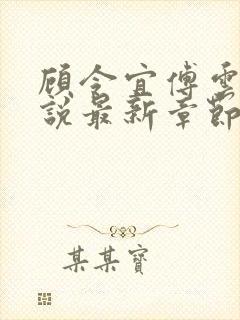 顾令宜傅雲
說最新章節
某某寶